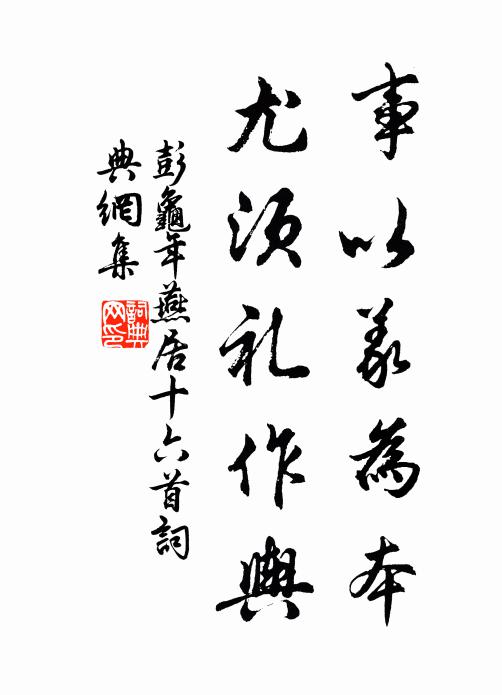 事以義為本
尤須礼作輿
彭龜年燕居十六首詞
典網集
詞典網印